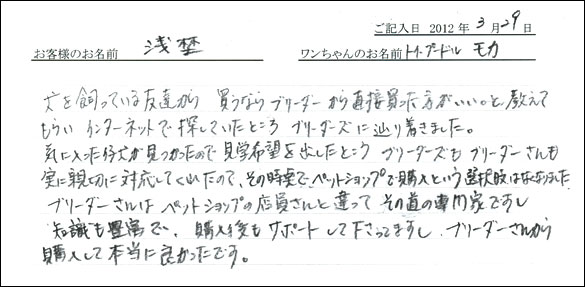 ご記入日 2012 年 3 月 29 日
お客様のお名前 浅埜 ワンちゃんのお名前 トイ・プードル モカ
犬を飼っている友達から 買うならブリーダーから直接買った方がいい。と教えて
もらい インターネットで探していたところ ブリーダーズに辿り着きました。
気に入った仔犬が見つかったので見学希望を出したところ ブリーダーズもブリーダーさんも
実に親切に対応してくれたので、その時点で、ペットショップで購入という選択肢はなくなりました
ブリーダーさんは ペットショップの店員さんと違って その道の専門家ですし
知識も豊富で、購入後もサポートして下さってますし、ブリーダーさんから
購入して本当に良かったです。